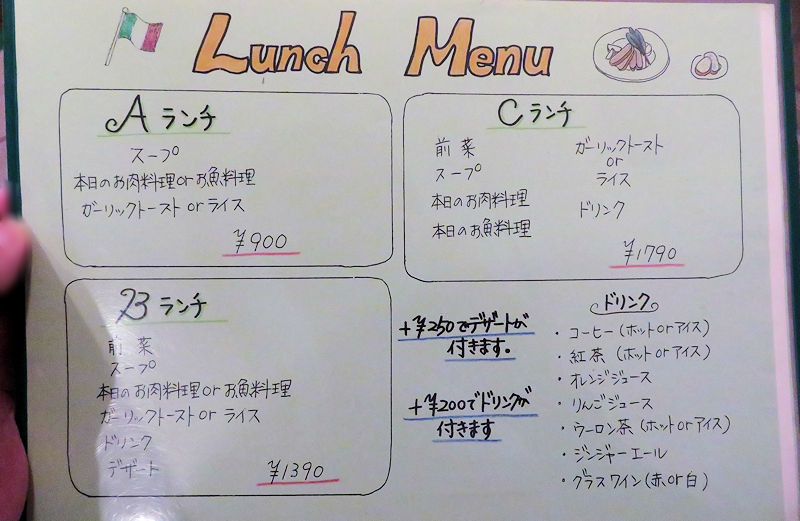 Lunch Menu
A ランチ
スープ
本日のお肉料理orお魚料理
ガーリックトースト or ライス
¥900
B ランチ
前菜
スープ
本日のお肉料理orお魚料理
ガーリックトースト or ライス
ドリンク
デザート
¥1390
C ランチ
前菜
スープ
本日のお肉料理
本日のお魚料理
ガーリックトースト
or
ライス
ドリンク
¥1790
+¥250でデザートが
付きます。
+¥200でドリンクが
付きます
ドリンク
・コーヒー(ホットorアイス)
・紅茶(ホットorアイス)
・オレンジジュース
・りんごジュース
・ウーロン茶(ホットorアイス)
・ジンジャーエール
・グラスワイン(赤or白)